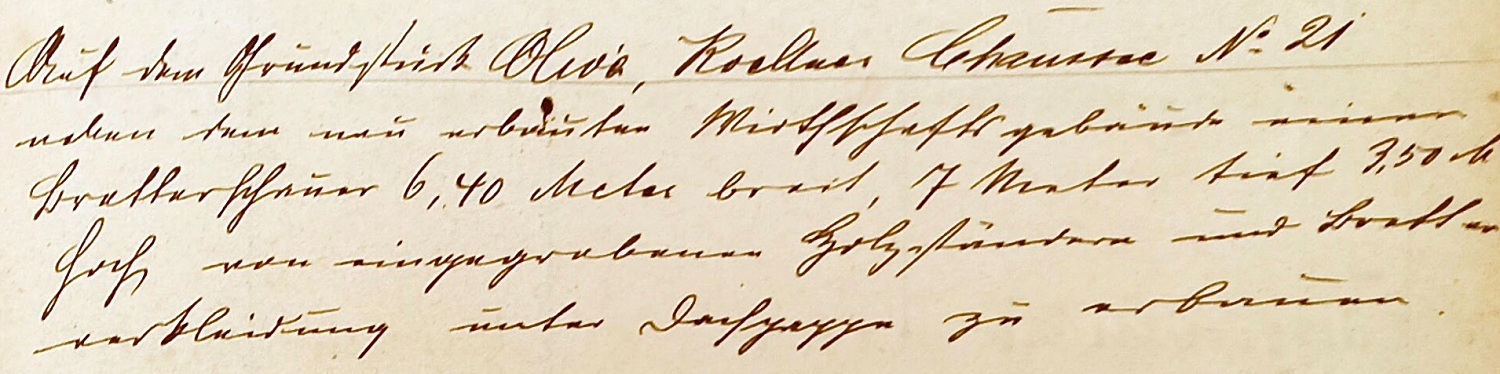 Auf dem Grundstück Oliva, Koellner Chaussee No 21
neben dem neu erbauten Wirthschaftsgebäude einen
Bretterschauer 6,40 Meter breit, 7 Meter tief 3,50 M
hoch von eingegrabenen Holzständern und Bretter
verkleidung unter Dachpappe zu erbauen.